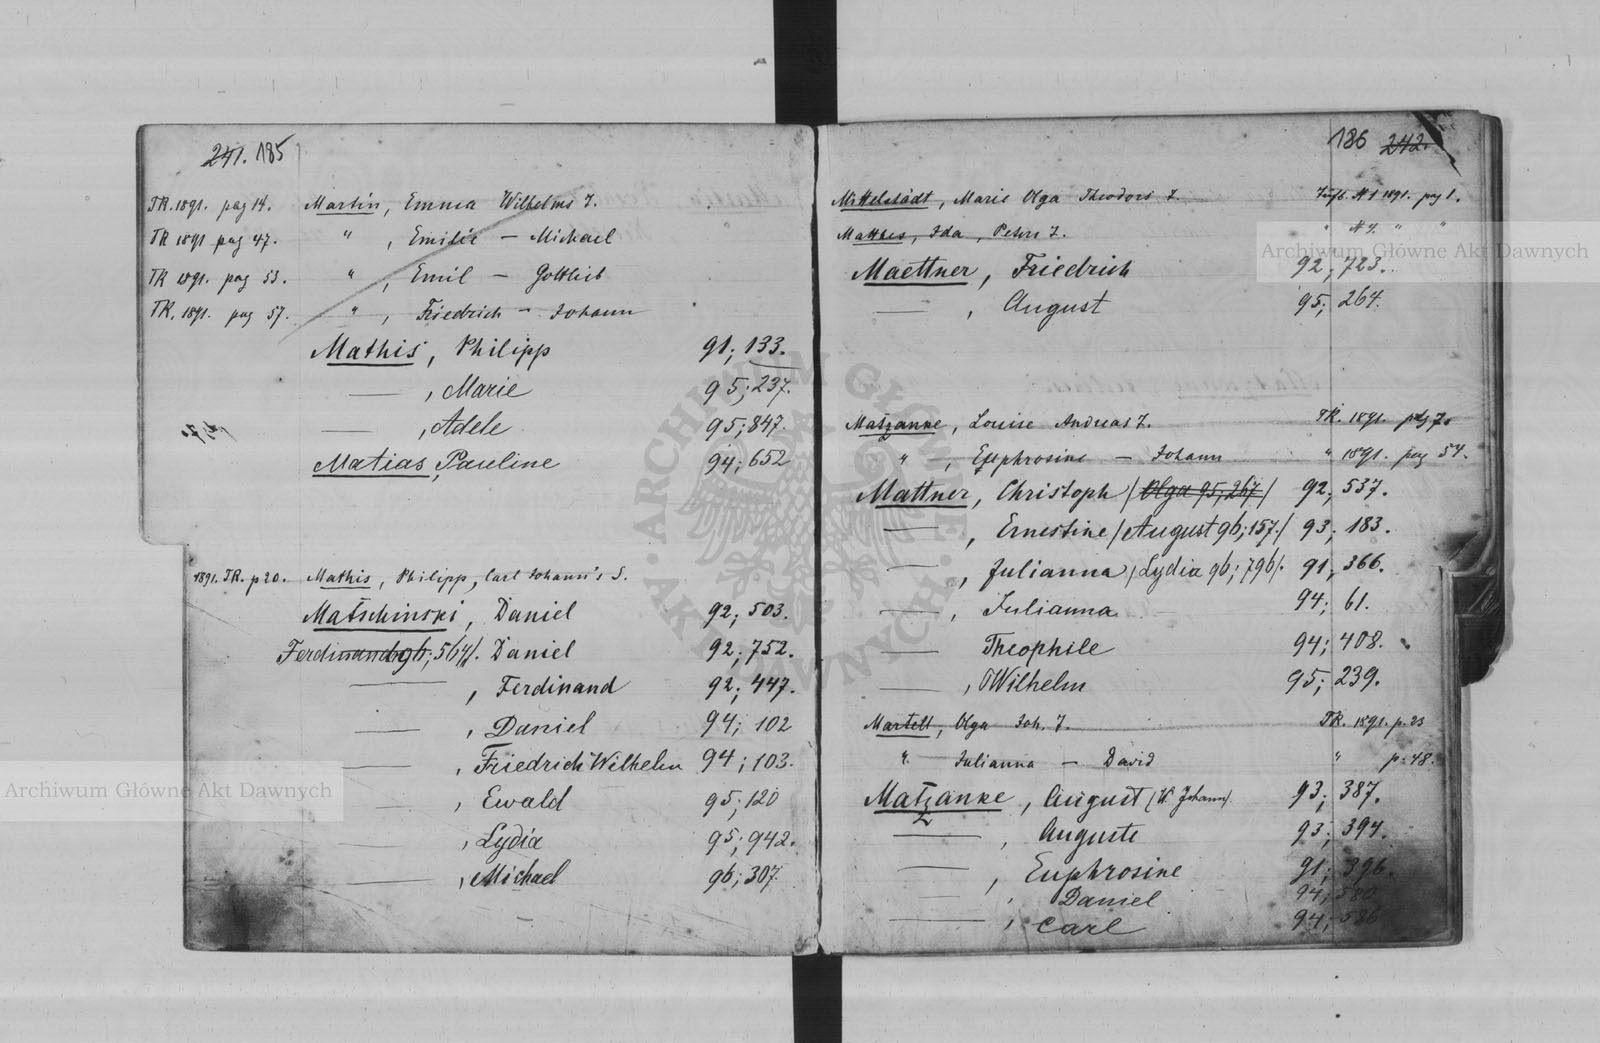 241. 185
TR. 1891. pag 14. Martin, Emma Wilhelms T.
TR 1891 pag 47. " , Emilie — Michael
TR 1891. pag 53. " , Emil — Gottlieb
TR. 1891. pag 57. " , Friedrich — Johann
Mathis, Philipp 91; 133.
—— , Marie 95; 237.
—— , Adele 95; 847.
Matias, Pauline 94; 652
1891. TR. p 20. Mathis, Philipp, Carl Johann's S.
Matschinski, Daniel 92; 503.
Ferdinand 96; 564/. Daniel 92; 752.
—— , Ferdinand 92; 447.
—— , Daniel 94; 102
—— , Friedrich Wilhelm 94; 103.
—— , Ewald 95; 120
—— , Lydia 95; 942.
—— , Michael 96; 307
186 242.
Mittelstädt, Marie Olga Theodors T. N 1 1891. pag 1.
Mattes, Ida, Peters T. " N 9. " "
Maettner, Friedrich 92, 723.
—— , August 95; 264.
Matzanke, Louise Andreas T. TR. 1891. pag 7.
" , Euphrosine — Johann " 1891. pag 54.
Mattner, Christoph /Olga 95; 267/ 92; 537.
—— , Ernestine /August 96; 157./ 93; 183.
—— , Julianna /Lydia 96; 796/. 91; 366.
—— , Julianna 94; 61.
—— Theophile 94; 408.
—— , Wilhelm 95; 239.
Martell, Olga Joh. T. TR. 1891. p. 23
" Julianna — David " p. 48.
Matzanke, August (W. Johann). 93; 387.
—— , Auguste 93; 394.
—— , Euphrosine 91; 396.
—— , Daniel 94; 580
—— , Carl 94; 586
Archiwum Główne Akt Dawnych
Archiwum Główne Akt Dawnych
ARCHIWUM GŁÓWNE AKT DAWNYCH